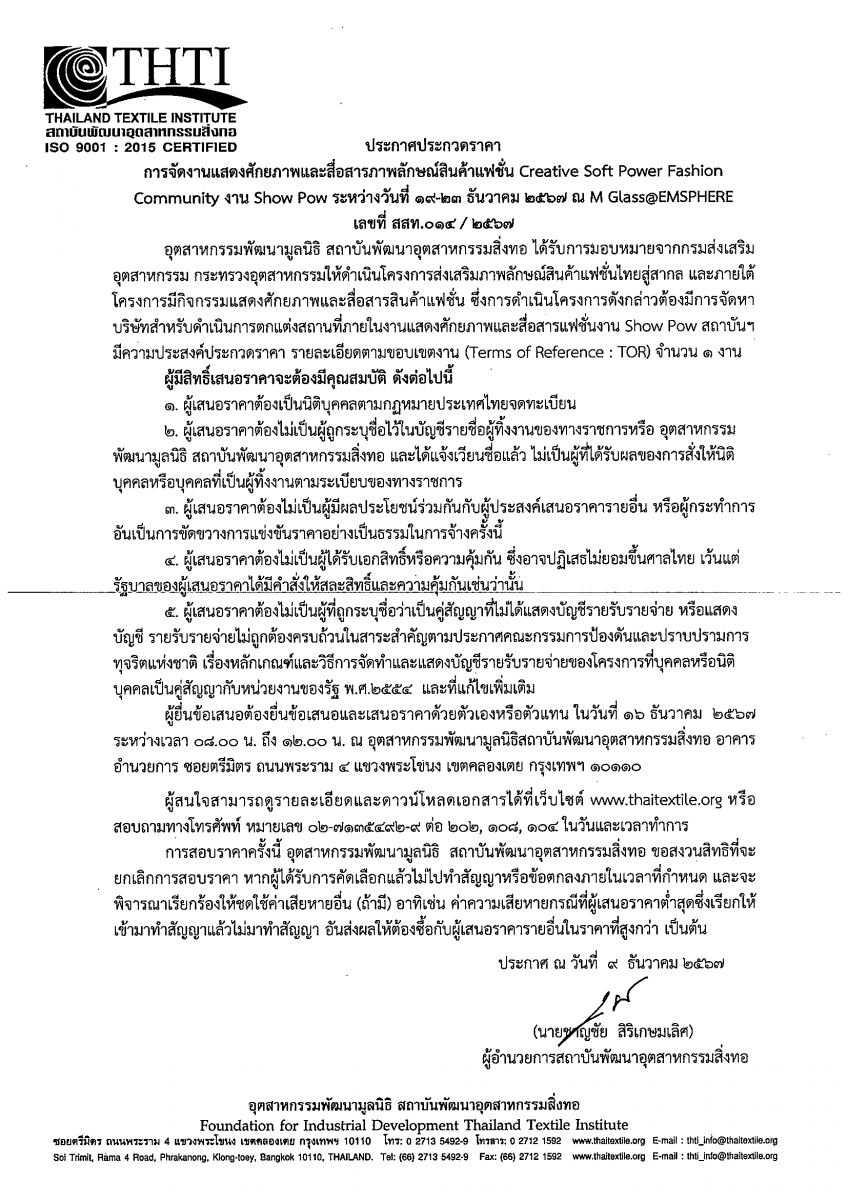 THTI
THAILAND TEXTILE INSTITUTE
สถาบันพัฒนาอุตสาหกรรมสิ่งทอ
ISO 9001 : 2015 CERTIFIED
ประกาศประกวดราคา
การจัดงานแสดงศักยภาพและสื่อสารภาพลักษณ์สินค้าแฟชั่น Creative Soft Power Fashion
Community งาน Show Pow ระหว่างวันที่ ๑๙-๒๓ ธันวาคม ๒๕๖๗ ณ M Glass@EMSPHERE
เลขที่ สสท.๐๑๔ / ๒๕๖๗
อุตสาหกรรมพัฒนามูลนิธิ สถาบันพัฒนาอุตสาหกรรมสิ่งทอ ได้รับการมอบหมายจากกรมส่งเสริม
อุตสาหกรรม กระทรวงอุตสาหกรรมให้ดำเนินโครงการส่งเสริมภาพลักษณ์สินค้าแฟชั่นไทยสู่สากล และภายใต้
โครงการมีกิจกรรมแสดงศักยภาพและสื่อสารสินค้าแฟชั่น ซึ่งการดำเนินโครงการดังกล่าวต้องมีการจัดหา
บริษัทสำหรับดำเนินการตกแต่งสถานที่ภายในงานแสดงศักยภาพและสื่อสารแฟชั่นงาน Show Pow สถาบันฯ
มีความประสงค์ประกวดราคา รายละเอียดตามขอบเขตงาน (Terms of Reference : TOR) จำนวน ๑ งาน
ผู้มีสิทธิ์เสนอราคาจะต้องมีคุณสมบัติ ดังต่อไปนี้
๑. ผู้เสนอราคาต้องเป็นนิติบุคคลตามกฎหมายประเทศไทยจดทะเบียน
๒. ผู้เสนอราคาต้องไม่เป็นผู้ถูกระบุชื่อไว้ในบัญชีรายชื่อผู้ทิ้งงานของทางราชการหรือ อุตสาหกรรม
พัฒนามูลนิธิ สถาบันพัฒนาอุตสาหกรรมสิ่งทอ และได้แจ้งเวียนชื่อแล้ว ไม่เป็นผู้ที่ได้รับผลของการสั่งให้นิติ
บุคคลหรือบุคคลที่เป็นผู้ทิ้งงานตามระเบียบของทางราชการ
๓. ผู้เสนอราคาต้องไม่เป็นผู้มีผลประโยชน์ร่วมกันกับผู้ประสงค์เสนอราคารายอื่น หรือผู้กระทำการ
อันเป็นการขัดขวางการแข่งขันราคาอย่างเป็นธรรมในการจ้างครั้งนี้
๔. ผู้เสนอราคาต้องไม่เป็นผู้ได้รับเอกสิทธิ์หรือความคุ้มกัน ซึ่งอาจปฏิเสธไม่ยอมขึ้นศาลไทย เว้นแต่
รัฐบาลของผู้เสนอราคาได้มีคำสั่งให้สละสิทธิ์และความคุ้มกันเช่นว่านั้น
๕. ผู้เสนอราคาต้องไม่เป็นผู้ที่ถูกระบุชื่อว่าเป็นคู่สัญญาที่ไม่ได้แสดงบัญชีรายรับรายจ่าย หรือแสดง
บัญชี รายรับรายจ่ายไม่ถูกต้องครบถ้วนในสาระสำคัญตามประกาศคณะกรรมการป้องดันและปราบปรามการ
ทุจริตแห่งชาติ เรื่องหลักเกณฑ์และวิธีการจัดทำและแสดงบัญชีรายรับรายจ่ายของโครงการที่บุคคลหรือนิติ
บุคคลเป็นคู่สัญญากับหน่วยงานของรัฐ พ.ศ.๒๕๕๔ และที่แก้ไขเพิ่มเติม
ผู้ยื่นข้อเสนอต้องยื่นข้อเสนอและเสนอราคาด้วยตัวเองหรือตัวแทน ในวันที่ ๑๖ ธันวาคม ๒๕๖๗
ระหว่างเวลา ๐๘.๐๐ น. ถึง ๑๒.๐๐ น. ณ อุตสาหกรรมพัฒนามูลนิธิสถาบันพัฒนาอุตสาหกรรมสิ่งทอ อาคาร
อำนวยการ ซอยตรีมิตร ถนนพระราม ๔ แขวงพระโขนง เขตคลองเตย กรุงเทพฯ ๑๐๑๑๐
ผู้สนใจสามารถดูรายละเอียดและดาวน์โหลดเอกสารได้ที่เว็บไซต์ www.thaitextile.org หรือ
สอบถามทางโทรศัพท์ หมายเลข ๐๒-๗๑๓๕๔๙๒-๙ ต่อ ๒๐๒, ๑๐๘, ๑๐๔ ในวันและเวลาทำการ
การสอบราคาครั้งนี้ อุตสาหกรรมพัฒนามูลนิธิ สถาบันพัฒนาอุตสาหกรรมสิ่งทอ ขอสงวนสิทธิที่จะ
ยกเลิกการสอบราคา หากผู้ได้รับการคัดเลือกแล้วไม่ไปทำสัญญาหรือข้อตกลงภายในเวลาที่กำหนด และจะ
พิจารณาเรียกร้องให้ชดใช้ค่าเสียหายอื่น (ถ้ามี) อาทิเช่น ค่าความเสียหายกรณีที่ผู้เสนอราคาต่ำสุดซึ่งเรียกให้
เข้ามาทำสัญญาแล้วไม่มาทำสัญญา อันส่งผลให้ต้องซื้อกับผู้เสนอราคารายอื่นในราคาที่สูงกว่า เป็นต้น
ประกาศ ณ วันที่ ๙ ธันวาคม ๒๕๖๗
(นายชาญชัย สิริเกษมเลิศ)
ผู้อำนวยการสถาบันพัฒนาอุตสาหกรรมสิ่งทอ
อุตสาหกรรมพัฒนามูลนิธิ สถาบันพัฒนาอุตสาหกรรมสิ่งทอ
Foundation for Industrial Development Thailand Textile Institute
ซอยตรีมิตร ถนนพระราม 4 แขวงพระโขนง เขตคลองเตย กรุงเทพฯ 10110 โทร: 0 2713 5492-9 โทรสาร: 0 2712 1592 www.thaitextile.org E-mail : thti_info@thaitextile.org
Soi Trimit, Rama 4 Road, Phrakanong, Klong-toey, Bangkok 10110, THAILAND. Tel: (66) 2713 5492-9 Fax: (66) 2712 1592 www.thaitextile.org E-mail : thti_info@thaitextile.org